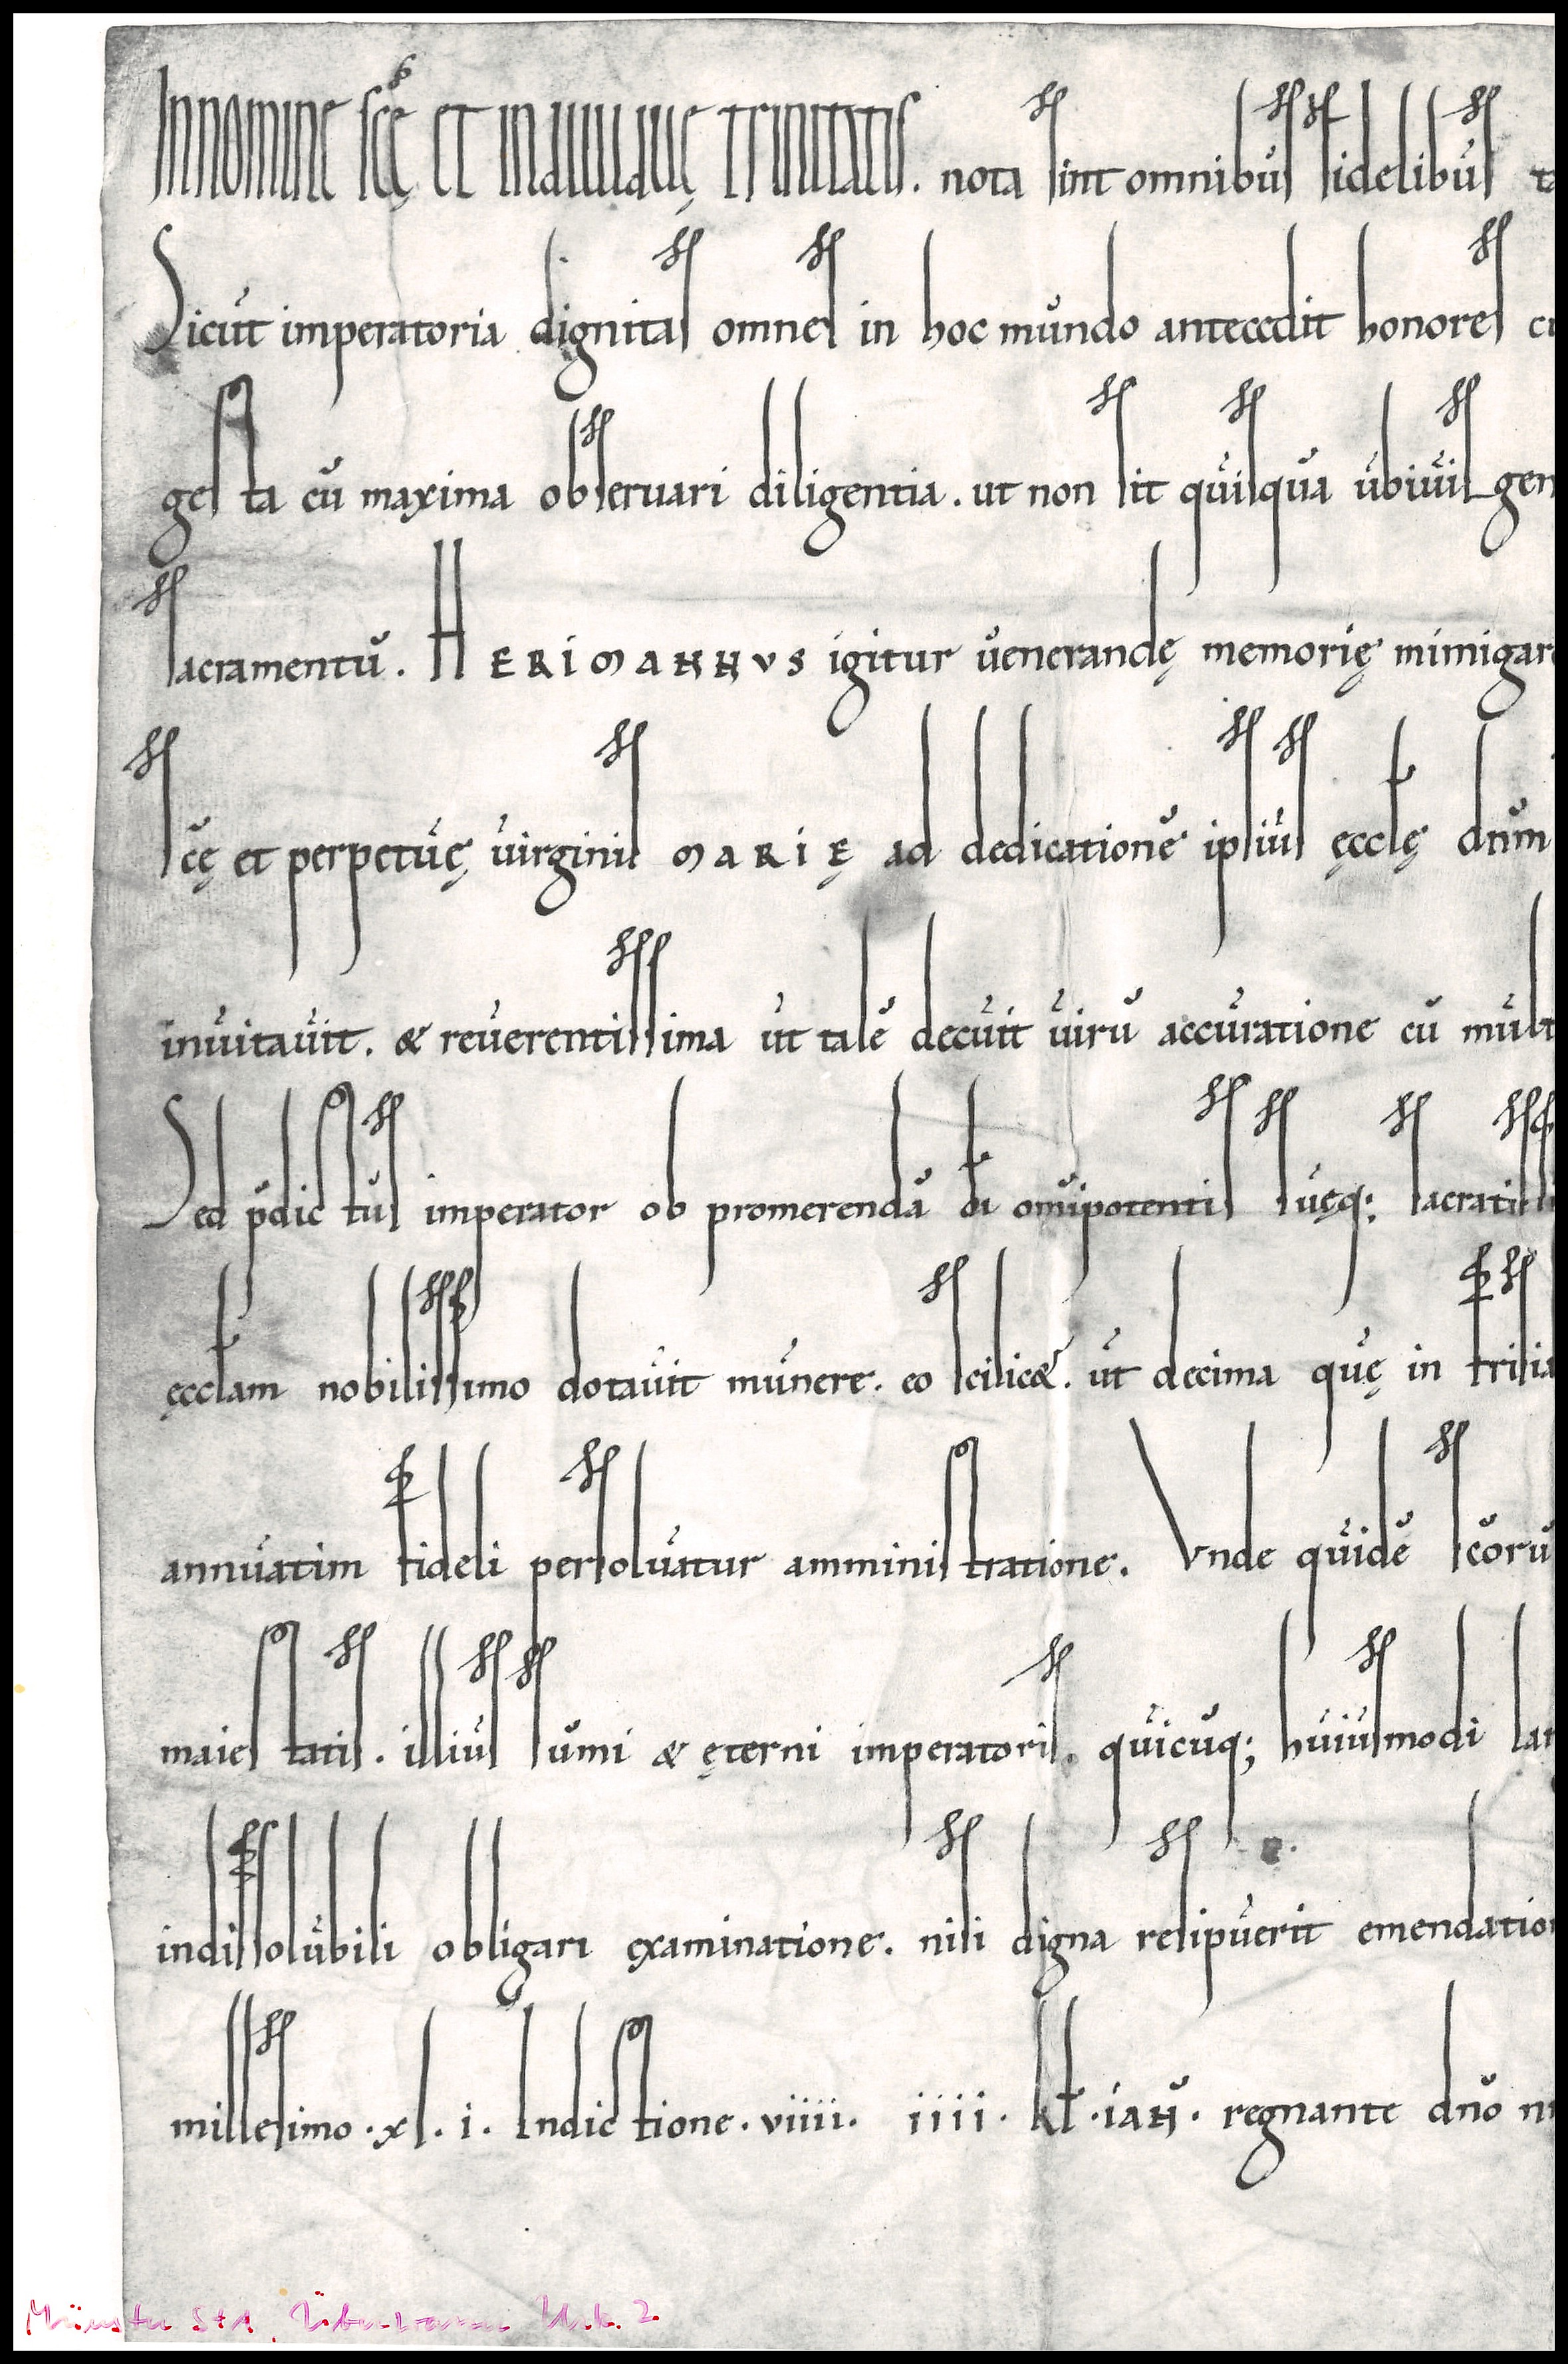 In nomine scę et individuę trinitatis. nota sint omnibus fidelibus
Sicut imperatoria dignitas omnes in hoc mundo antecedit honores
gesta cū maxima observari diligentia. ut non sit quisquā ubivis gen
sacramentū. HERIMANNVS igitur venerandę memorię mimigar
scę et perpetuę virginis MARIĘ ad dedicationē ipsius ęcclę dnm
invitavit. & reverentissima ut talē decuit virū accuratione cū mult
Sed p̄dictus imperator ob promerendā di omīpotentis suęq; sacratiss
ęcclam nobilissimo dotavit munere. eo scilic&. ut decima quę in frisia
annuatim fideli persolvatur amministratione. Vnde quidē scōrū
maiestatis. illius sūmi & ęterni imperatoris. quicūq; huiusmodi
indissolubili obligari examinatione. nisi digna resipuerit emendatio
millesimo .xl. i. Indictione. viiii. iiii. kł. ian̄. regnante dnō
Münster StA, Überwasser Urk. 2